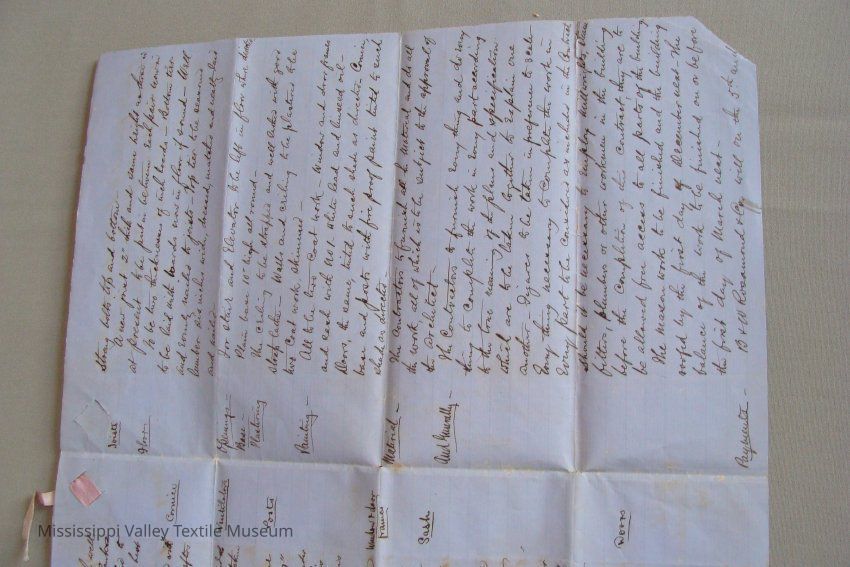 Strong bolts top and bottom -
Joists A new joist 2" and same height as there is
at present to be put in between each joist now in
Floor To be two thicknesses of inch boards - Bottom tier
to be laid with boards now in floor if sound - Well
and nailed to joists - Top tier to be seasoned
lumber and width, dressed matched and neatly laid
and nailed -
Openings - For Stair and Elevator to be left in floor when
Base - Plain base 10" high all around -
Plastering The Ceiling to be strapped and well lathed with good
Walls and ceiling to be plastered the
two Coat work, skimmed -
Painting - All to be two Coat work - Window and door frames
and sash with No 1 white lead and linseed oil -
Doors, the same, tinted to such shade as directed - Cornice
base and posts with fire proof paint tinted to such
shade as directed -
Material - The Contractors to furnish all the Material and do all
the work all of which is to be subject to the approval of
the architect -
And Generally - The Contractors to furnish every thing and do every
thing to complete the work in every part according
to the true meaning of the plans and specification
which are to be taken together to explain one
another - Figures to be taken in preference to scale
Every thing necessary to complete the work in
every part to be considered as included in the Contract
Should it be necessary to employ
fitters, plumbers or other in the building
before the Completion of this Contract, they are to
be allowed free access to all parts of the building
The Mason work to be finished and the building
roofed by the first day of December next - The
balance of the work to be finished on or before
the first day of March next -
Payments - B & W Rosamond & Co will on the 5th
Cornice
Posts
Window & door
frames
Sash
Doors
Mississippi Valley Textile Museum